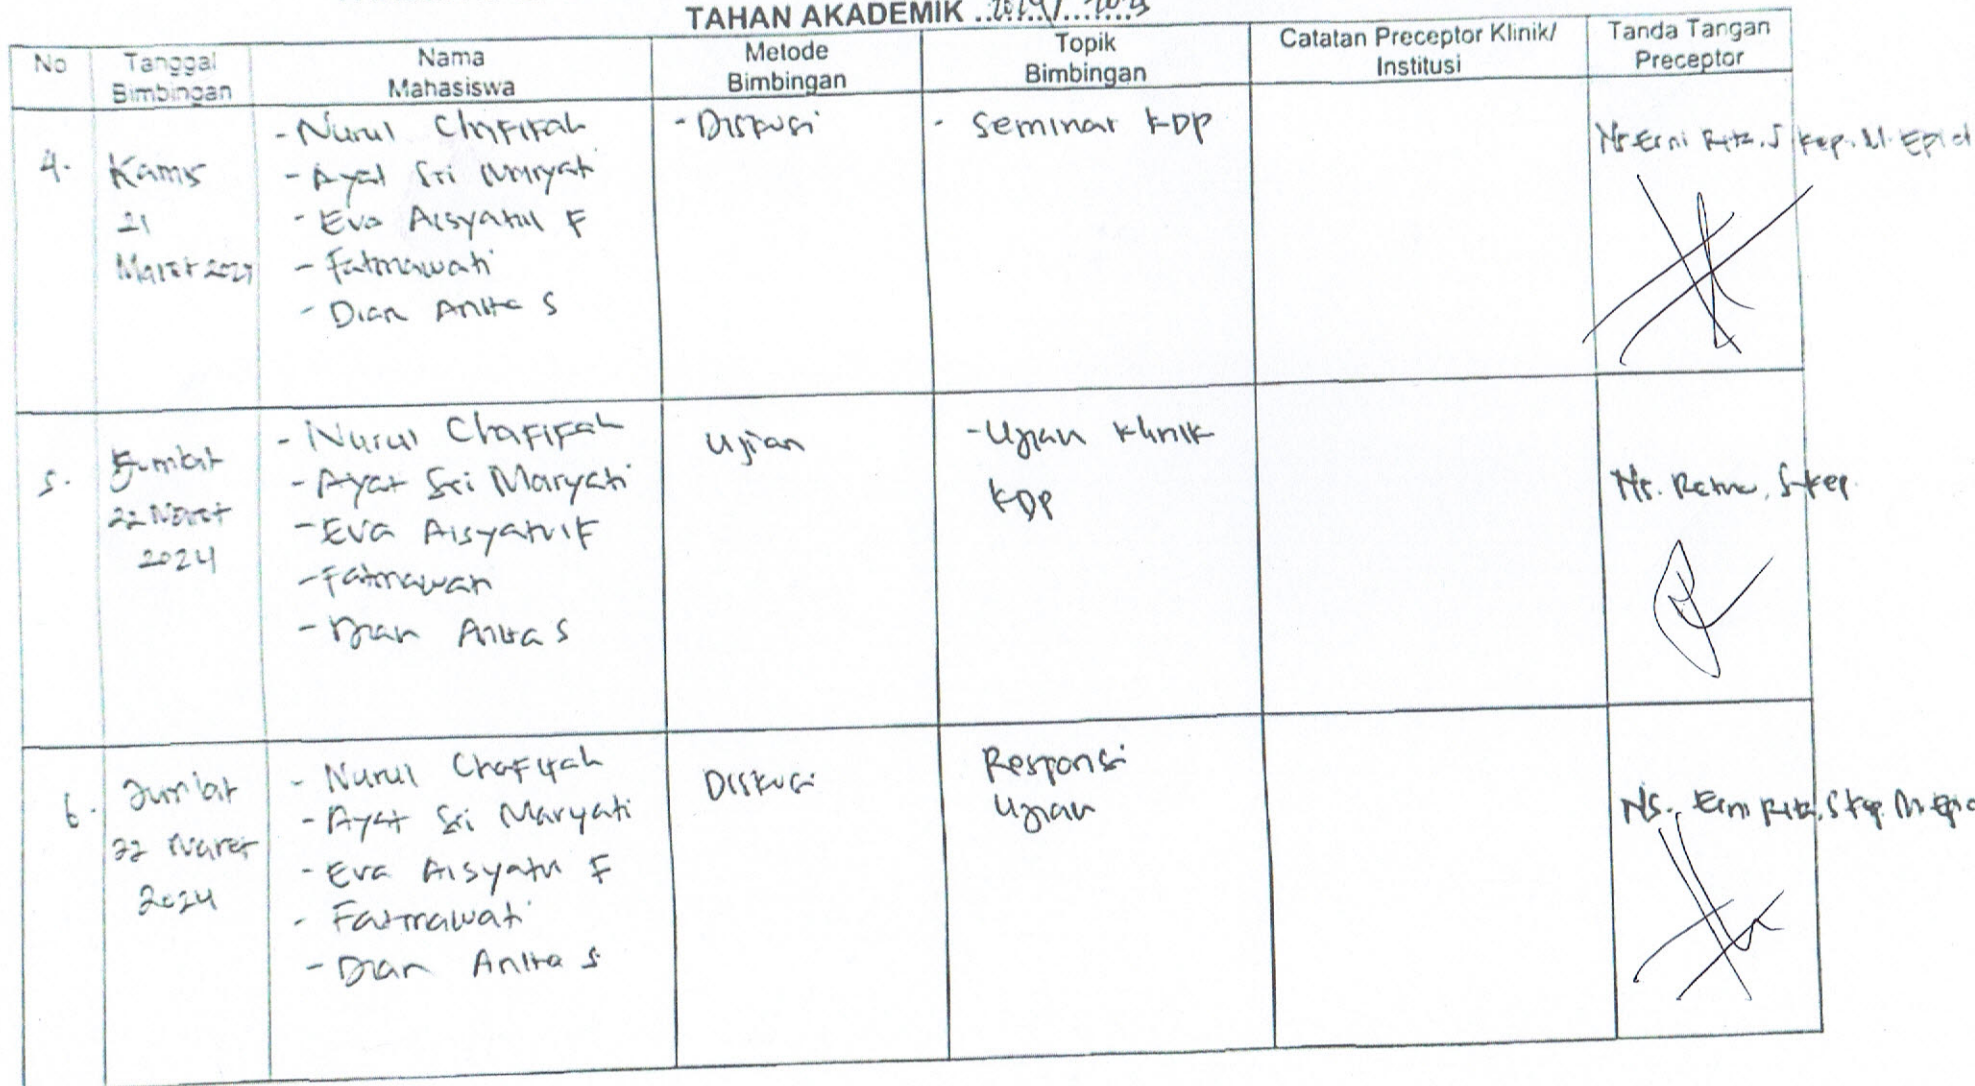 TAHAN AKADEMIK
No
Tanggal
Bimbingan
Nama
Mahasiswa
Metode
Bimbingan
Topik
Bimbingan
Catatan Preceptor Klinik/
Institusi
Tanda Tangan
Preceptor
4.
Kamis
21
Maret 2024
- Nurul Chafifah
- Ayat Sri Maryati
- Eva Aisyatul F
- Fatmawati
- Dian Anita S
- Diskusi
- Seminar KDP
Ns. Erni Rita. S.Kep. M. Epid
5.
Jumbat
22 Maret
2024
- Nurul Chafifah
- Ayat Sri Maryati
- Eva Aisyatul F
- Fatmawati
- Dian Anita S
Ujian
- Ujian Klinik
KDP
Ns. Retno, S.Kep
6.
Jumbat
22 Maret
2024
- Nurul Chafifah
- Ayat Sri Maryati
- Eva Aisyatul F
- Fatmawati
- Dian Anita S
Diskusi
Responsi
Ujian
Ns. Erni Rita, S.Kep. M. Epid